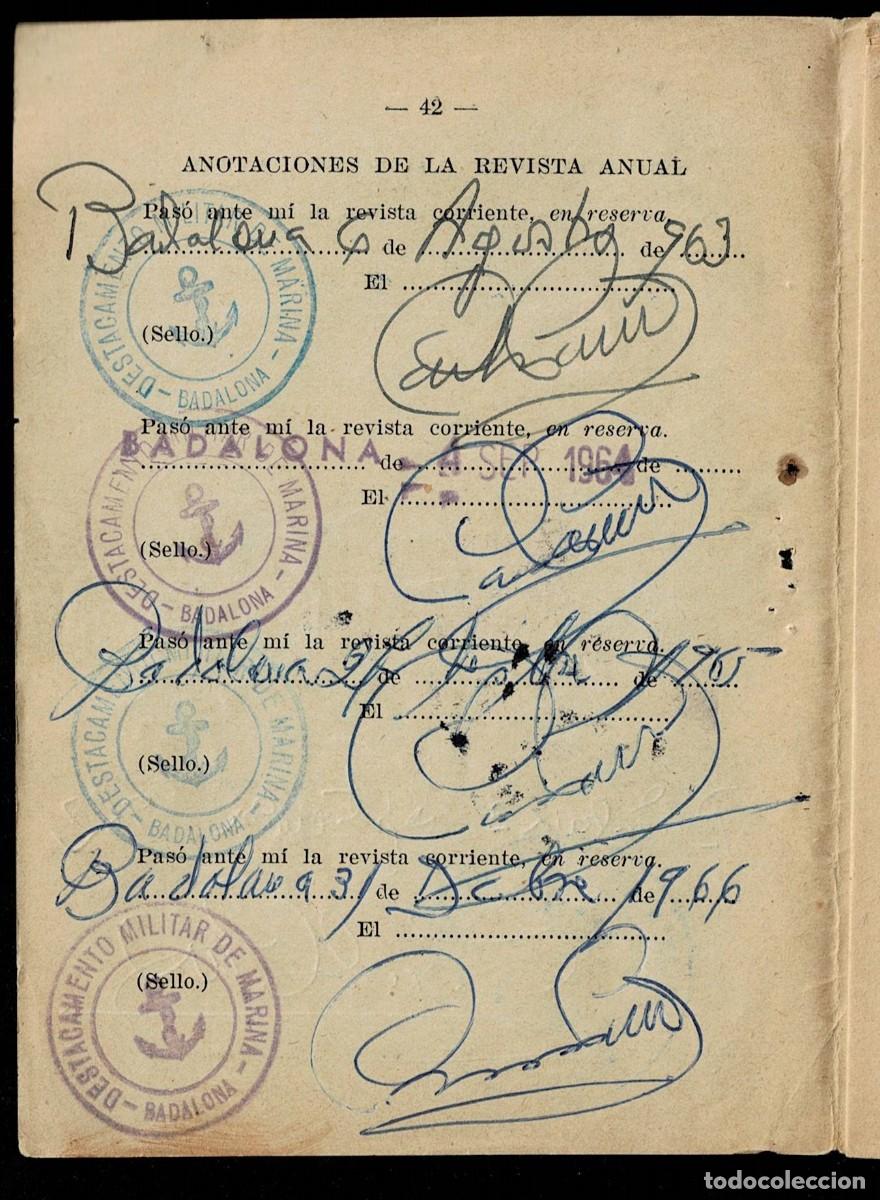 — 42 —
ANOTACIONES DE LA REVISTA ANUAL
Pasó ante mí la revista corriente, en reserva.
Badalona 6 de Agosto de 963
El
(Sello.)
DESTACAMENTO MILITAR DE MARINA - BADALONA -
Pasó ante mí la revista corriente, en reserva.
BADALONA de SEP 1964 de
El
(Sello.)
DESTACAMENTO DE MARINA - BADALONA -
Pasó ante mí la revista corriente, en reserva.
Badalona de de 1965
El
(Sello.)
DESTACAMENTO DE MARINA - BADALONA -
Pasó ante mí la revista corriente, en reserva.
Badalona 31 de Dcbre de 1966
El
(Sello.)
DESTACAMENTO MILITAR DE MARINA - BADALONA -
todocoleccion